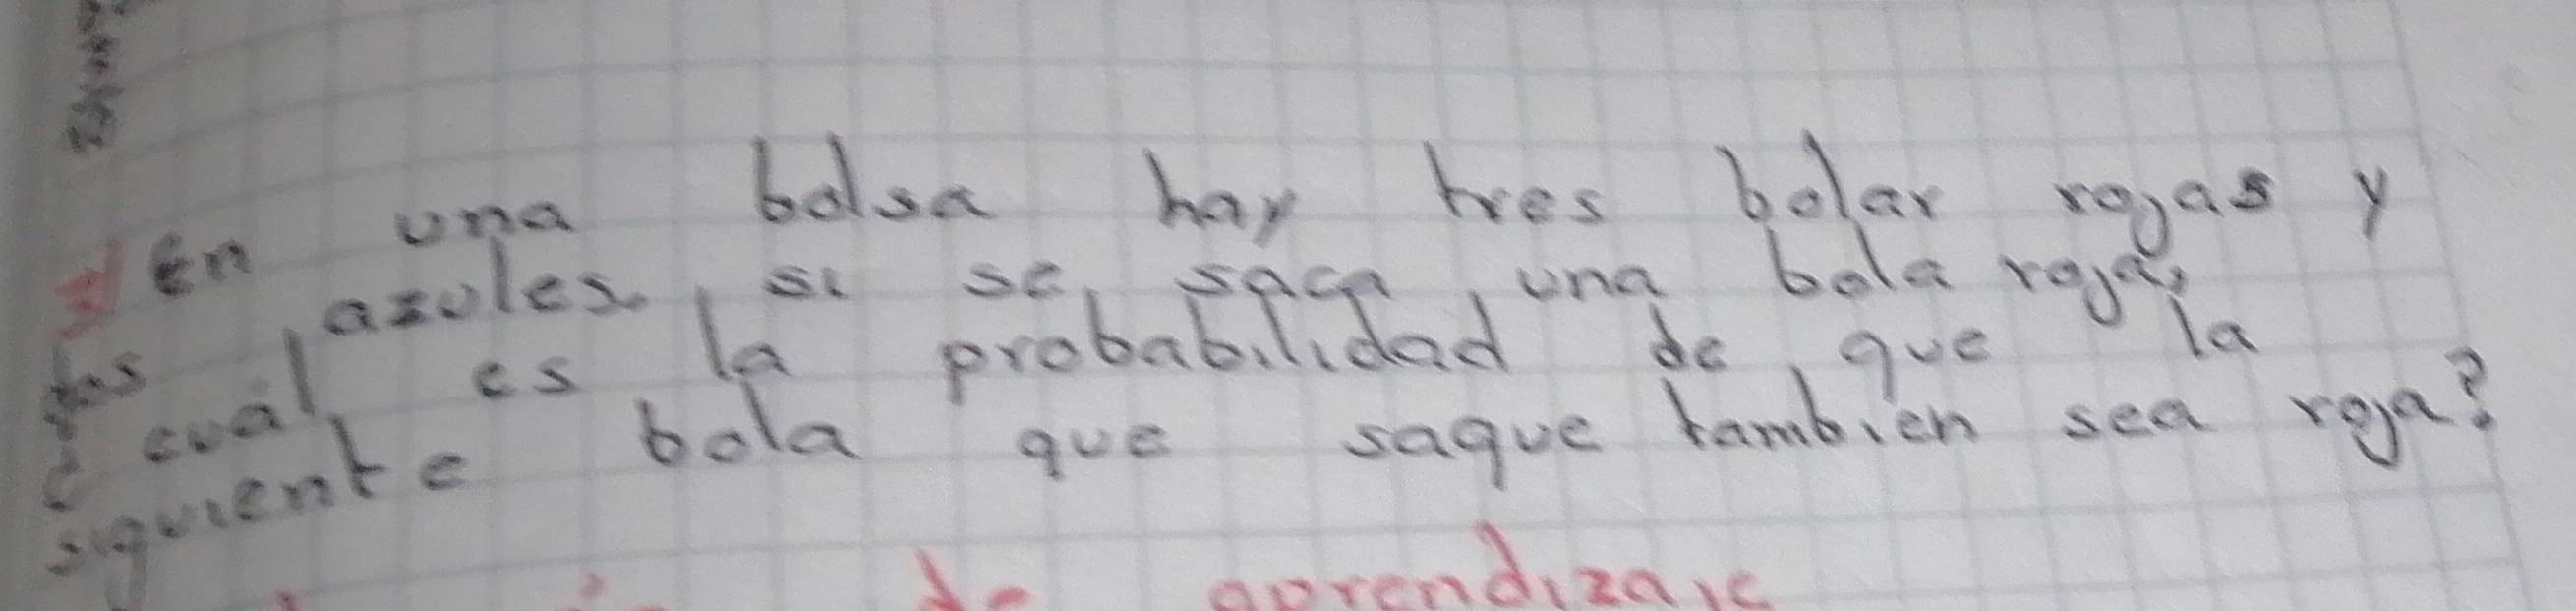 En una bolsa hay tres bolar rojas y
dos azules, si se saca una bola roja,
¿cuál es la probabilidad de que la
siguiente bola que saque tambien sea roja?
de aprendizaje